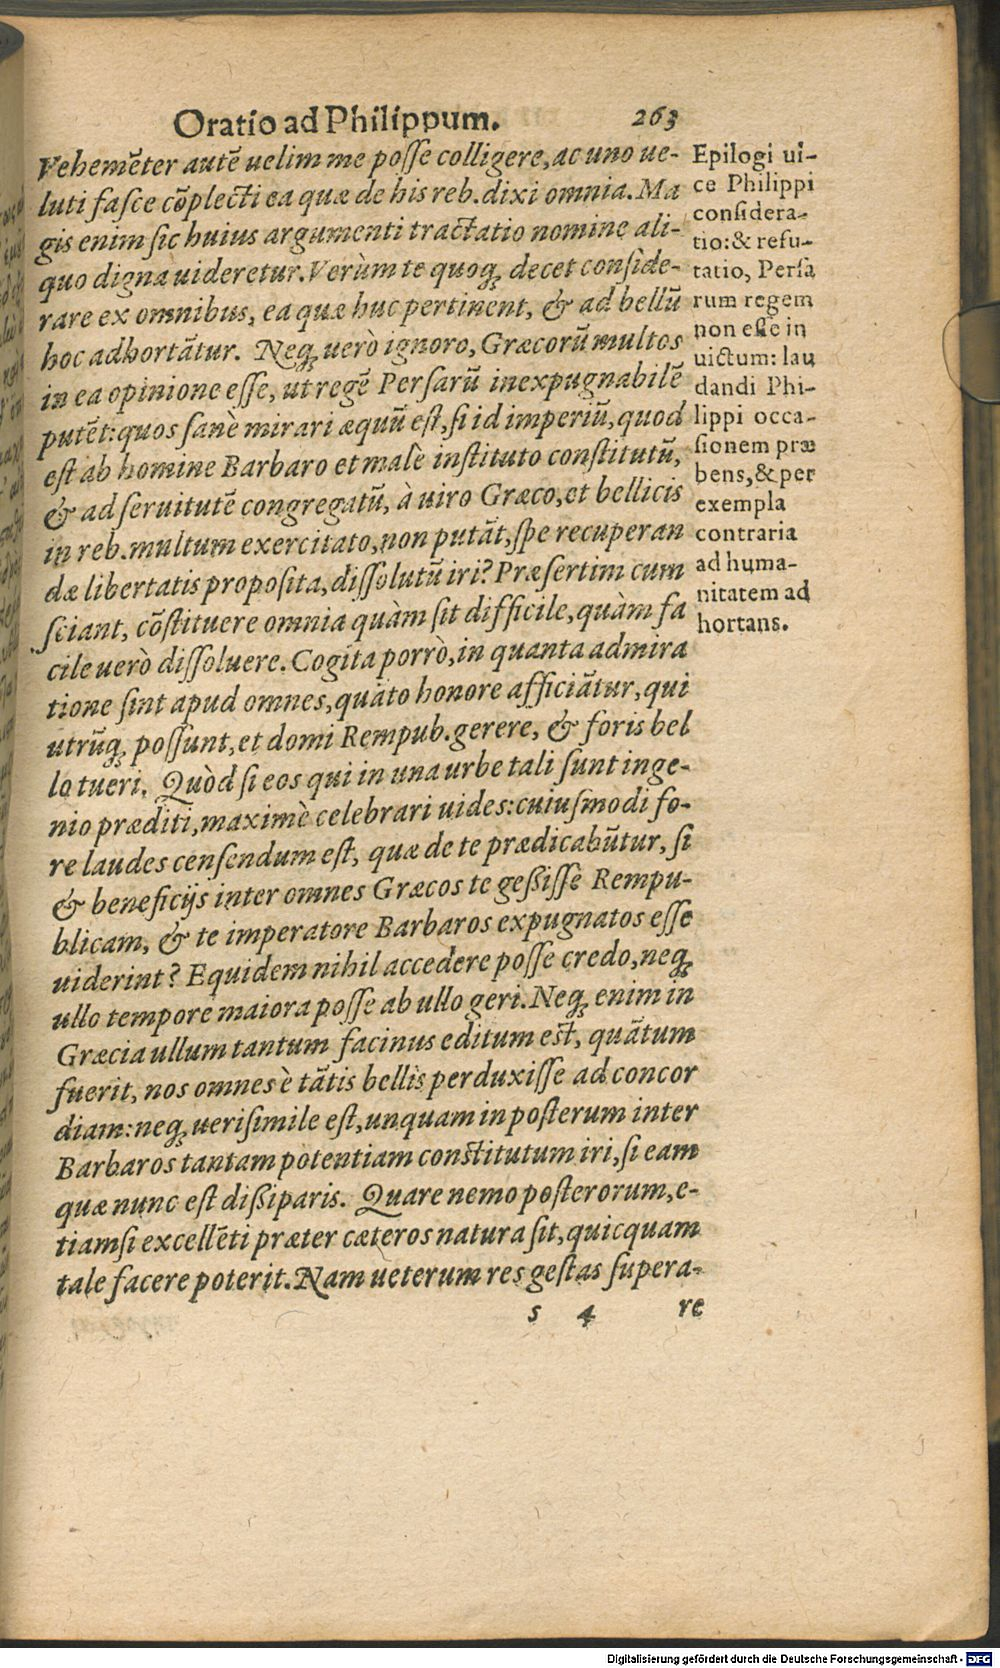 Oratio ad Philippum. 263
Vehemēter autē uelim me poſſe colligere, ac uno ue-
luti faſce cōplecti ea quæ de his reb. dixi omnia. Ma
gis enim ſic huius argumenti tractatio nomine ali-
quo digna uideretur. Verùm te quoqꝫ decet conſide-
rare ex omnibus, ea quæ huc pertinent, & ad bellū
hoc adhortātur. Neqꝫ uerò ignoro, Græcorū multos
in ea opinione eſſe, ut regē Perſarū inexpugnabilē
putēt: quos ſanè mirari æquū eſt, ſi id imperiū, quod
eſt ab homine Barbaro et malè inſtituto conſtitutū,
& ad ſeruitutē congregatū, à uiro Græco, et bellicis
in reb. multum exercitato, non putāt, ſpe recuperan
dæ libertatis propoſita, diſſolutū iri? Præſertim cum
ſciant, cōſtituere omnia quàm ſit difficile, quàm fa
cile uerò diſſoluere. Cogita porrò, in quanta admira
tione ſint apud omnes, quāto honore afficiātur, qui
utrūqꝫ poſſunt, et domi Rempub. gerere, & foris bel
lo tueri. Quòd ſi eos qui in una urbe tali ſunt inge-
nio præditi, maximè celebrari uides: cuiuſmodi fo-
re laudes cenſendum eſt, quæ de te prædicabūtur, ſi
& beneficijs inter omnes Græcos te geßiſſe Rempu-
blicam, & te imperatore Barbaros expugnatos eſſe
uiderint? Equidem nihil accedere poſſe credo, neqꝫ
ullo tempore maiora poſſe ab ullo geri. Neqꝫ enim in
Græcia ullum tantum facinus editum eſt, quātum
fuerit, nos omnes è tātis bellis perduxiſſe ad concor
diam: neqꝫ ueriſimile eſt, unquam in poſterum inter
Barbaros tantam potentiam conſtitutum iri, ſi eam
quæ nunc eſt dißiparis. Quare nemo poſterorum, e-
tiamſi excellēti præter cæteros natura ſit, quicquam
tale facere poterit. Nam ueterum res geſtas ſupera-
s 4 re
Epilogi ui-
ce Philippi
conſidera-
tio: & refu-
tatio, Perſa
rum regem
non eſſe in
uictum: lau
dandi Phi-
lippi occa-
ſionem præ
bens, & per
exempla
contraria
ad huma-
nitatem ad
hortans.
Digitalisierung gefördert durch die Deutsche Forschungsgemeinschaft - DFG